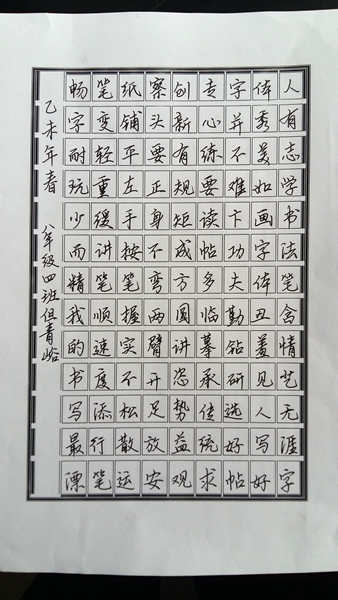 人有志学书法笔含情艺无涯字
体秀美如画字体丑羞见人写好
字并不难下功夫勤钻研选好帖
专心练要读帖多临摹承传统求
创新有规矩成方圆讲姿势益观
案头要正身不弯两臂开足放安
纸铺平左手按笔握实不松散运
笔变轻重缓讲笔顺速度添行笔
畅字耐玩少而精我的书写最漂
乙未年春 八年级四班但青峪